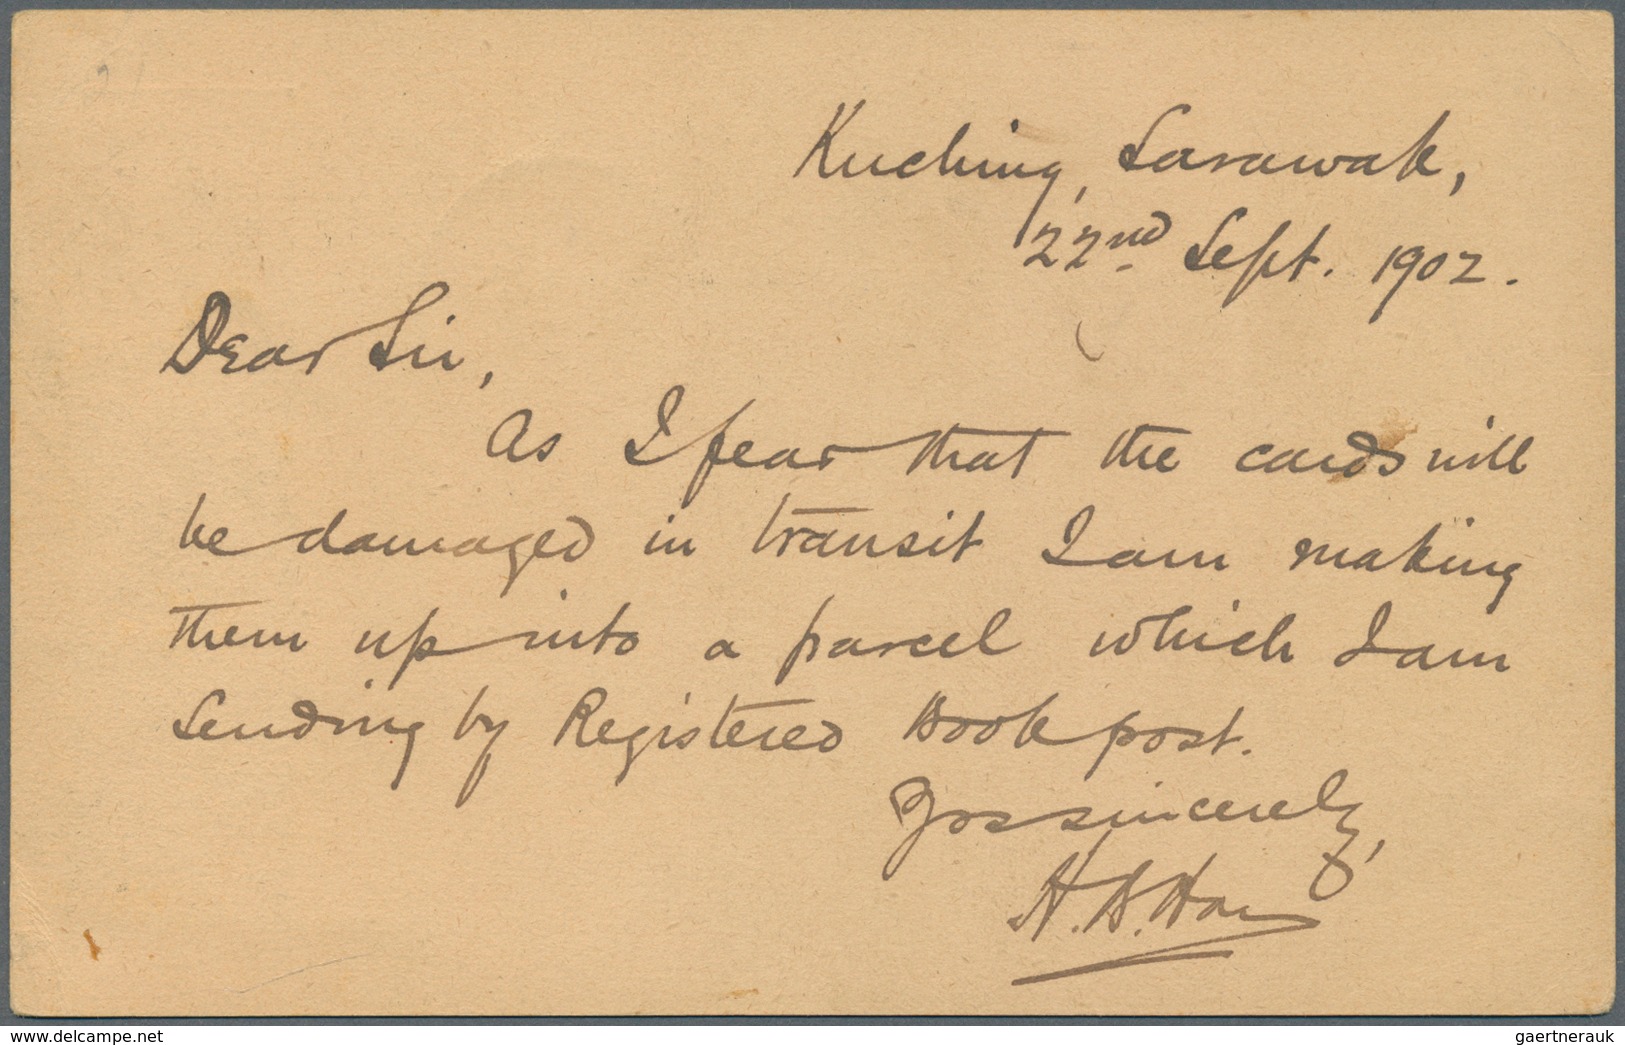 Kuching, Sarawak,
22nd Sept. 1902.
Dear Sir,
As I fear that the cards will
be damaged in transit I am making
them up into a parcel which I am
sending by Registered Book post.
Yos sincerely,
H.
delcampe.net
gaertnerauk